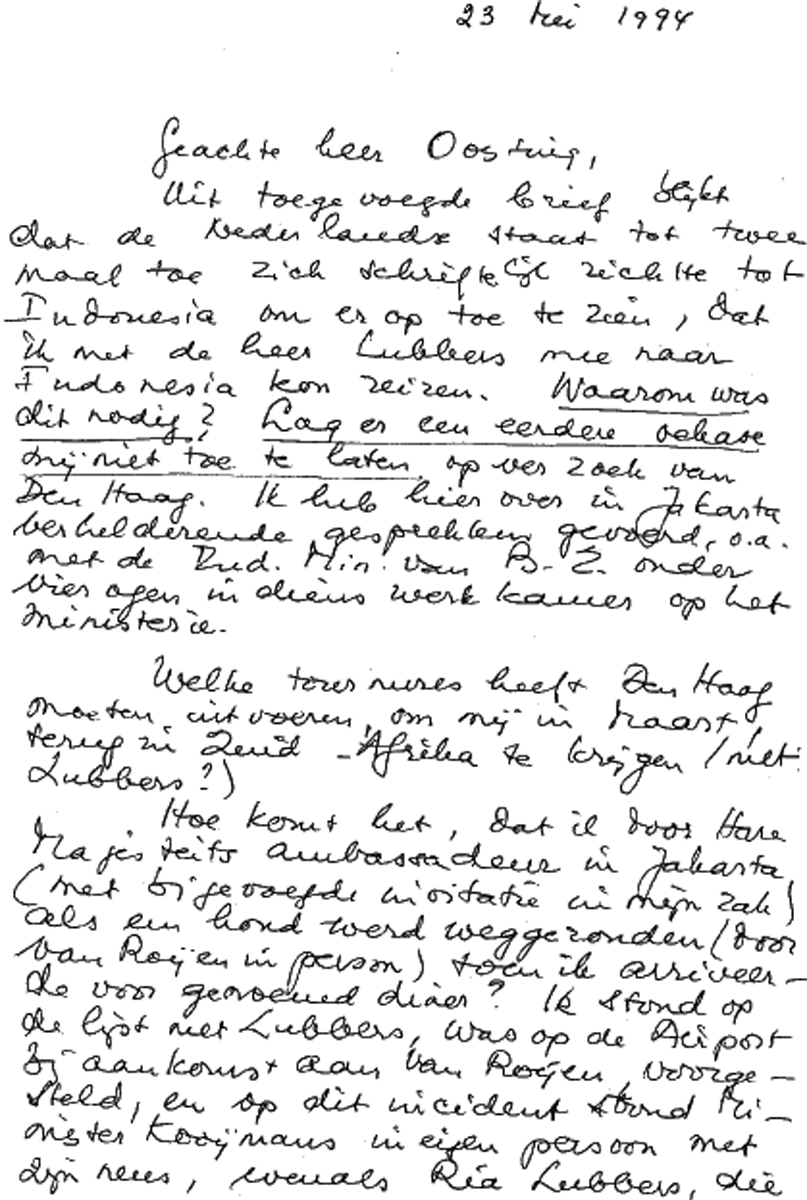 23 Mei 1994
Geachte heer Oosting,
Uit toegevoegde brief blijkt
dat de Nederlandse staat tot twee
maal toe zich schriftelijk richtte tot
Indonesia om er op toe te zien, dat
ik met de heer Lubbers mee naar
Indonesia kon reizen. Waarom was
dit nodig? Lag er een eerdere oekase
mij niet toe te laten op verzoek van
Den Haag. Ik heb hier over in Jakarta
verhelderende gesprekken gevoerd, o.a.
met de Ind. Min. van B.Z. onder
vier ogen in diens werkkamer op het
ministerie.
Welke tournures heeft Den Haag
moeten uitvoeren, om mij in Maart,
terug in Zuid-Afrika te krijgen (met
Lubbers?)
Hoe komt het, dat ik door Hare
Majesteits ambassadeur in Jakarta
(met bijgevoegde invitatie in mijn zak)
als een hond werd weggezonden (door
van Roijen in persoon) toen ik arriveer-
de voor genoemd diner? Ik stond op
de lijst met Lubbers, was op de Airport
bij aankomst aan Van Roijen voorge-
steld, en op dit incident stond Mi-
nister Kooijmans in eigen persoon met
zijn neus, evenals Ria Lubbers, die